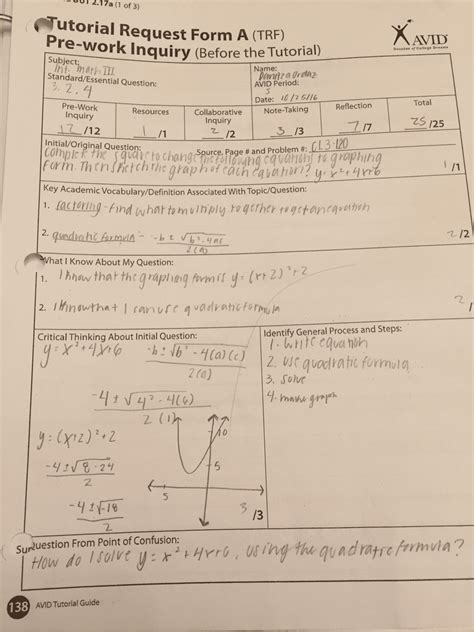 2.17a (1 of 3)
Tutorial Request Form A (TRF)
Pre-work Inquiry (Before the Tutorial)
AVID
Decades of College Dreams
Subject: Int. Math III
Name:
Standard/Essential Question:
3.2.4
AVID Period:
5
Date: 10/25/16
Pre-Work Inquiry
Resources
Collaborative Inquiry
Note-Taking
Reflection
Total
12 /12
1 /1
2 /2
3 /3
7 /7
25 /25
Initial/Original Question:
Source, Page # and Problem #: CL 3-120
Complete the square to change the following equation to graphing
form. Then sketch the graph of each equation? y=x²+4x+6
1 /1
Key Academic Vocabulary/Definition Associated With Topic/Question:
1. factoring - find what to multiply together to get an equation
2. quadratic formula - -b ± √b²-4ac
2(a)
2 /2
What I Know About My Question:
1. I know that the graphing form is y=(x+2)²+2
2. I know that I can use quadratic formula
2
Critical Thinking About Initial Question:
Identify General Process and Steps:
y=x²+4x+6
-b ± √b²-4(a)(c)
2(a)
1. write equation
2. use quadratic formula
3. solve
4. make graph
-4 ± √4²-4(6)
2(1)
y=(x+2)²+2
10
-4±√8-24
2
5
-4±√-18
2
5
3 /3
Question From Point of Confusion:
How do I solve y=x²+4x+6, using the quadratic formula?
138
AVID Tutorial Guide